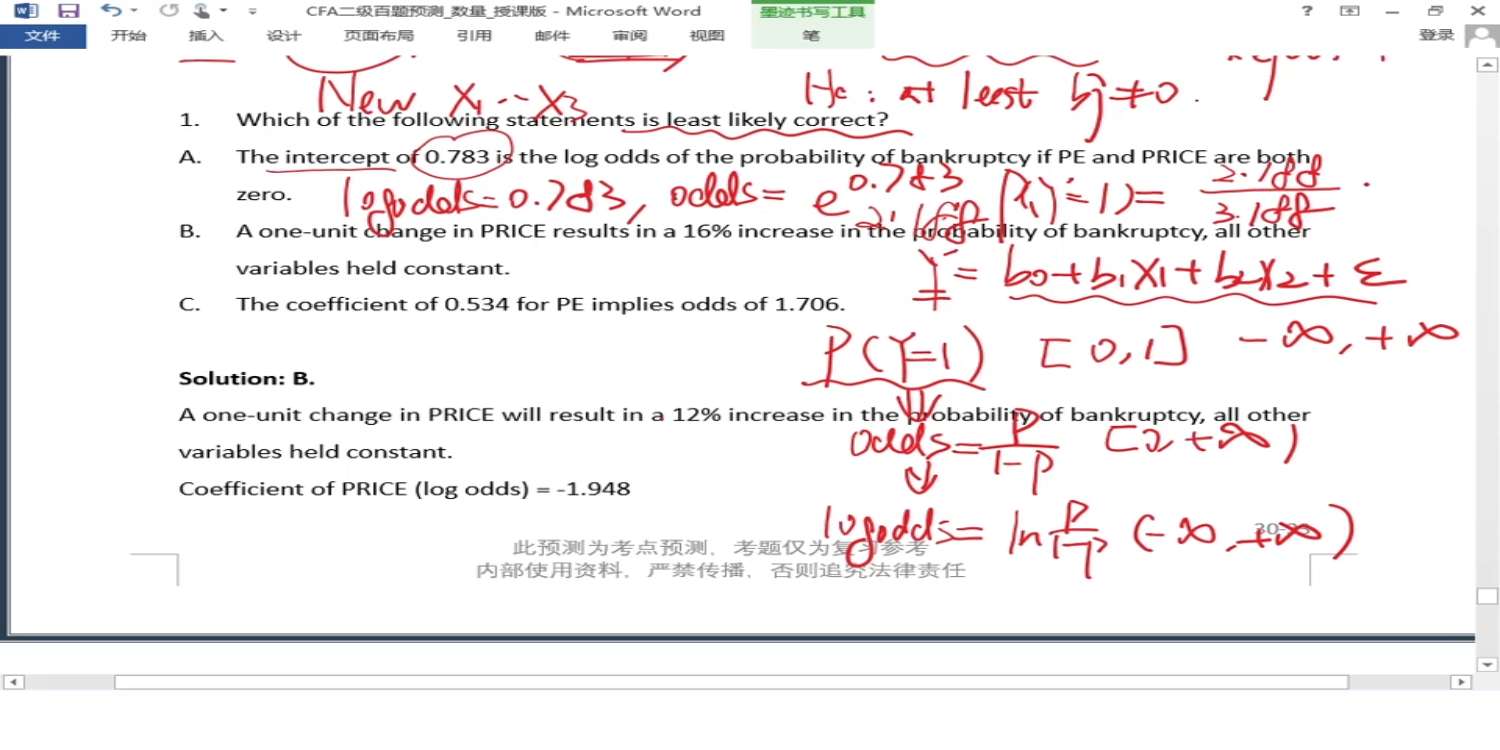 CFA二级百题预测_数量_授课版 - Microsoft Word
墨迹书写工具
文件 开始 插入 设计 页面布局 引用 邮件 审阅 视图 笔 登录
New X1 -- X3
Hc : at least bj ≠ 0 .
1. Which of the following statements is least likely correct?
A. The intercept of 0.783 is the log odds of the probability of bankruptcy if PE and PRICE are both
zero.
logodds = 0.783, odds = e^0.783 2.188 P(Y=1) = 2.188/3.188 .
B. A one-unit change in PRICE results in a 16% increase in the probability of bankruptcy, all other
variables held constant.
Y = b0 + b1X1 + b2X2 + ε
C. The coefficient of 0.534 for PE implies odds of 1.706.
P(Y=1) [0,1] -∞, +∞
Solution: B.
A one-unit change in PRICE will result in a 12% increase in the probability of bankruptcy, all other
odds = P/1-P
variables held constant.
Coefficient of PRICE (log odds) = -1.948
logodds = ln P/1-P (-∞, +∞)
此预测为考点预测，考题仅为复习参考
内部使用资料，严禁传播，否则追究法律责任